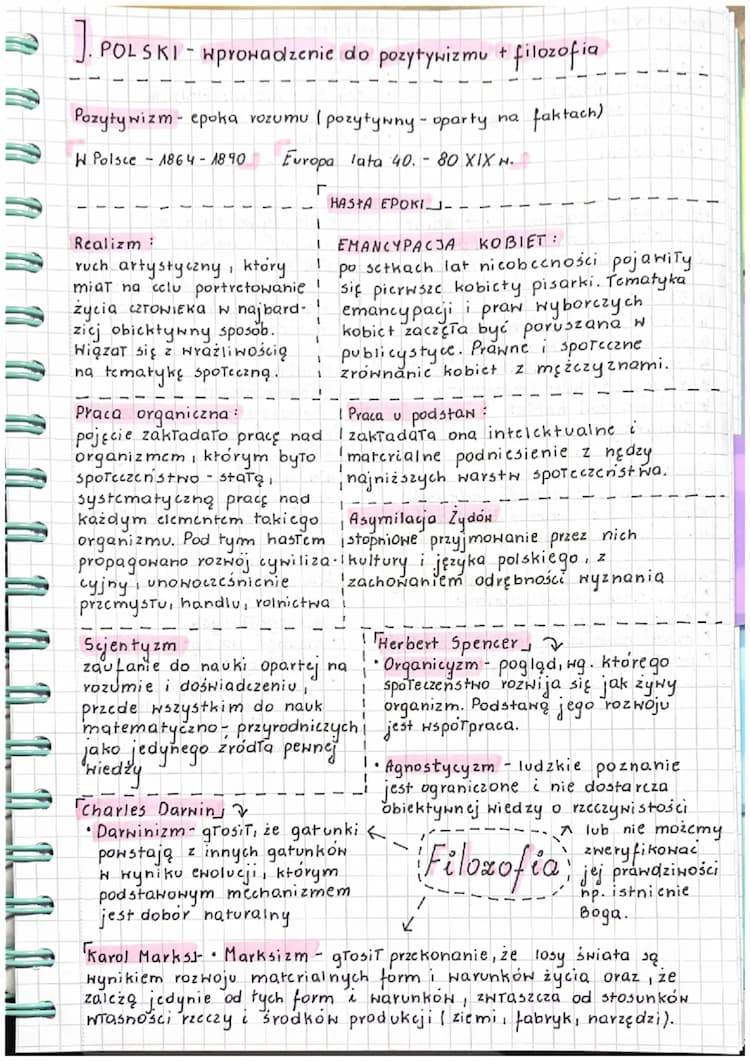 J. POLSKI - wprowadzenie do pozytywizmu + filozofia
Pozytywizm - epoka rozumu (pozytywny - oparty na faktach)
W Polsce - 1864 - 1890
Europa lata 40. - 80 XIX w.
HASŁA EPOKI
Realizm :
ruch artystyczny, który
miał na celu portretowanie
życia człowieka w najbard-
ziej obiektywny sposób.
Wiązał się z wrażliwością
na tematykę społeczną.
EMANCYPACJA KOBIET :
po setkach lat nieobecności pojawiły
się pierwsze kobiety pisarki. Tematyka
emancypacji i praw wyborczych
kobiet zaczęła być poruszana w
publicystyce. Prawne i społeczne
zrównanie kobiet z mężczyznami.
Praca organiczna :
pojęcie zakładało pracę nad
organizmem, którym było
społeczeństwo - stałą,
systematyczną pracę nad
każdym elementem takiego
organizmu. Pod tym hasłem
propagowano rozwój cywiliza-
cyjny, unowocześnienie
przemysłu, handlu, rolnictwa
Praca u podstaw :
zakładała ona intelektualne i
materialne podniesienie z nędzy
najniższych warstw społeczeństwa.
Asymilacja Żydów
stopniowe przyjmowanie przez nich
kultury i języka polskiego, z
zachowaniem odrębności wyznania
Scjentyzm
zaufanie do nauki opartej na
rozumie i doświadczeniu,
przede wszystkim do nauk
matematyczno - przyrodniczych
jako jedynego źródła pewnej
wiedzy
Herbert Spencer
• Organicyzm - pogląd, wg. którego
społeczeństwo rozwija się jak żywy
organizm. Podstawą jego rozwoju
jest współpraca.
• Agnostycyzm - ludzkie poznanie
jest ograniczone i nie dostarcza
obiektywnej wiedzy o rzeczywistości
lub nie możemy
zweryfikować
jej prawdziwości
np. istnienie
Boga.
Charles Darwin
• Darwinizm - głosił, że gatunki
powstają z innych gatunków
w wyniku ewolucji, którym
podstawowym mechanizmem
jest dobór naturalny
Filozofia
Karol Marks - • Marksizm - głosił przekonanie, że losy świata są
wynikiem rozwoju materialnych form i warunków życia oraz, że
zależą jedynie od tych form i warunków, zwłaszcza od stosunków
własności rzeczy i środków produkcji (ziemi, fabryk, narzędzi).